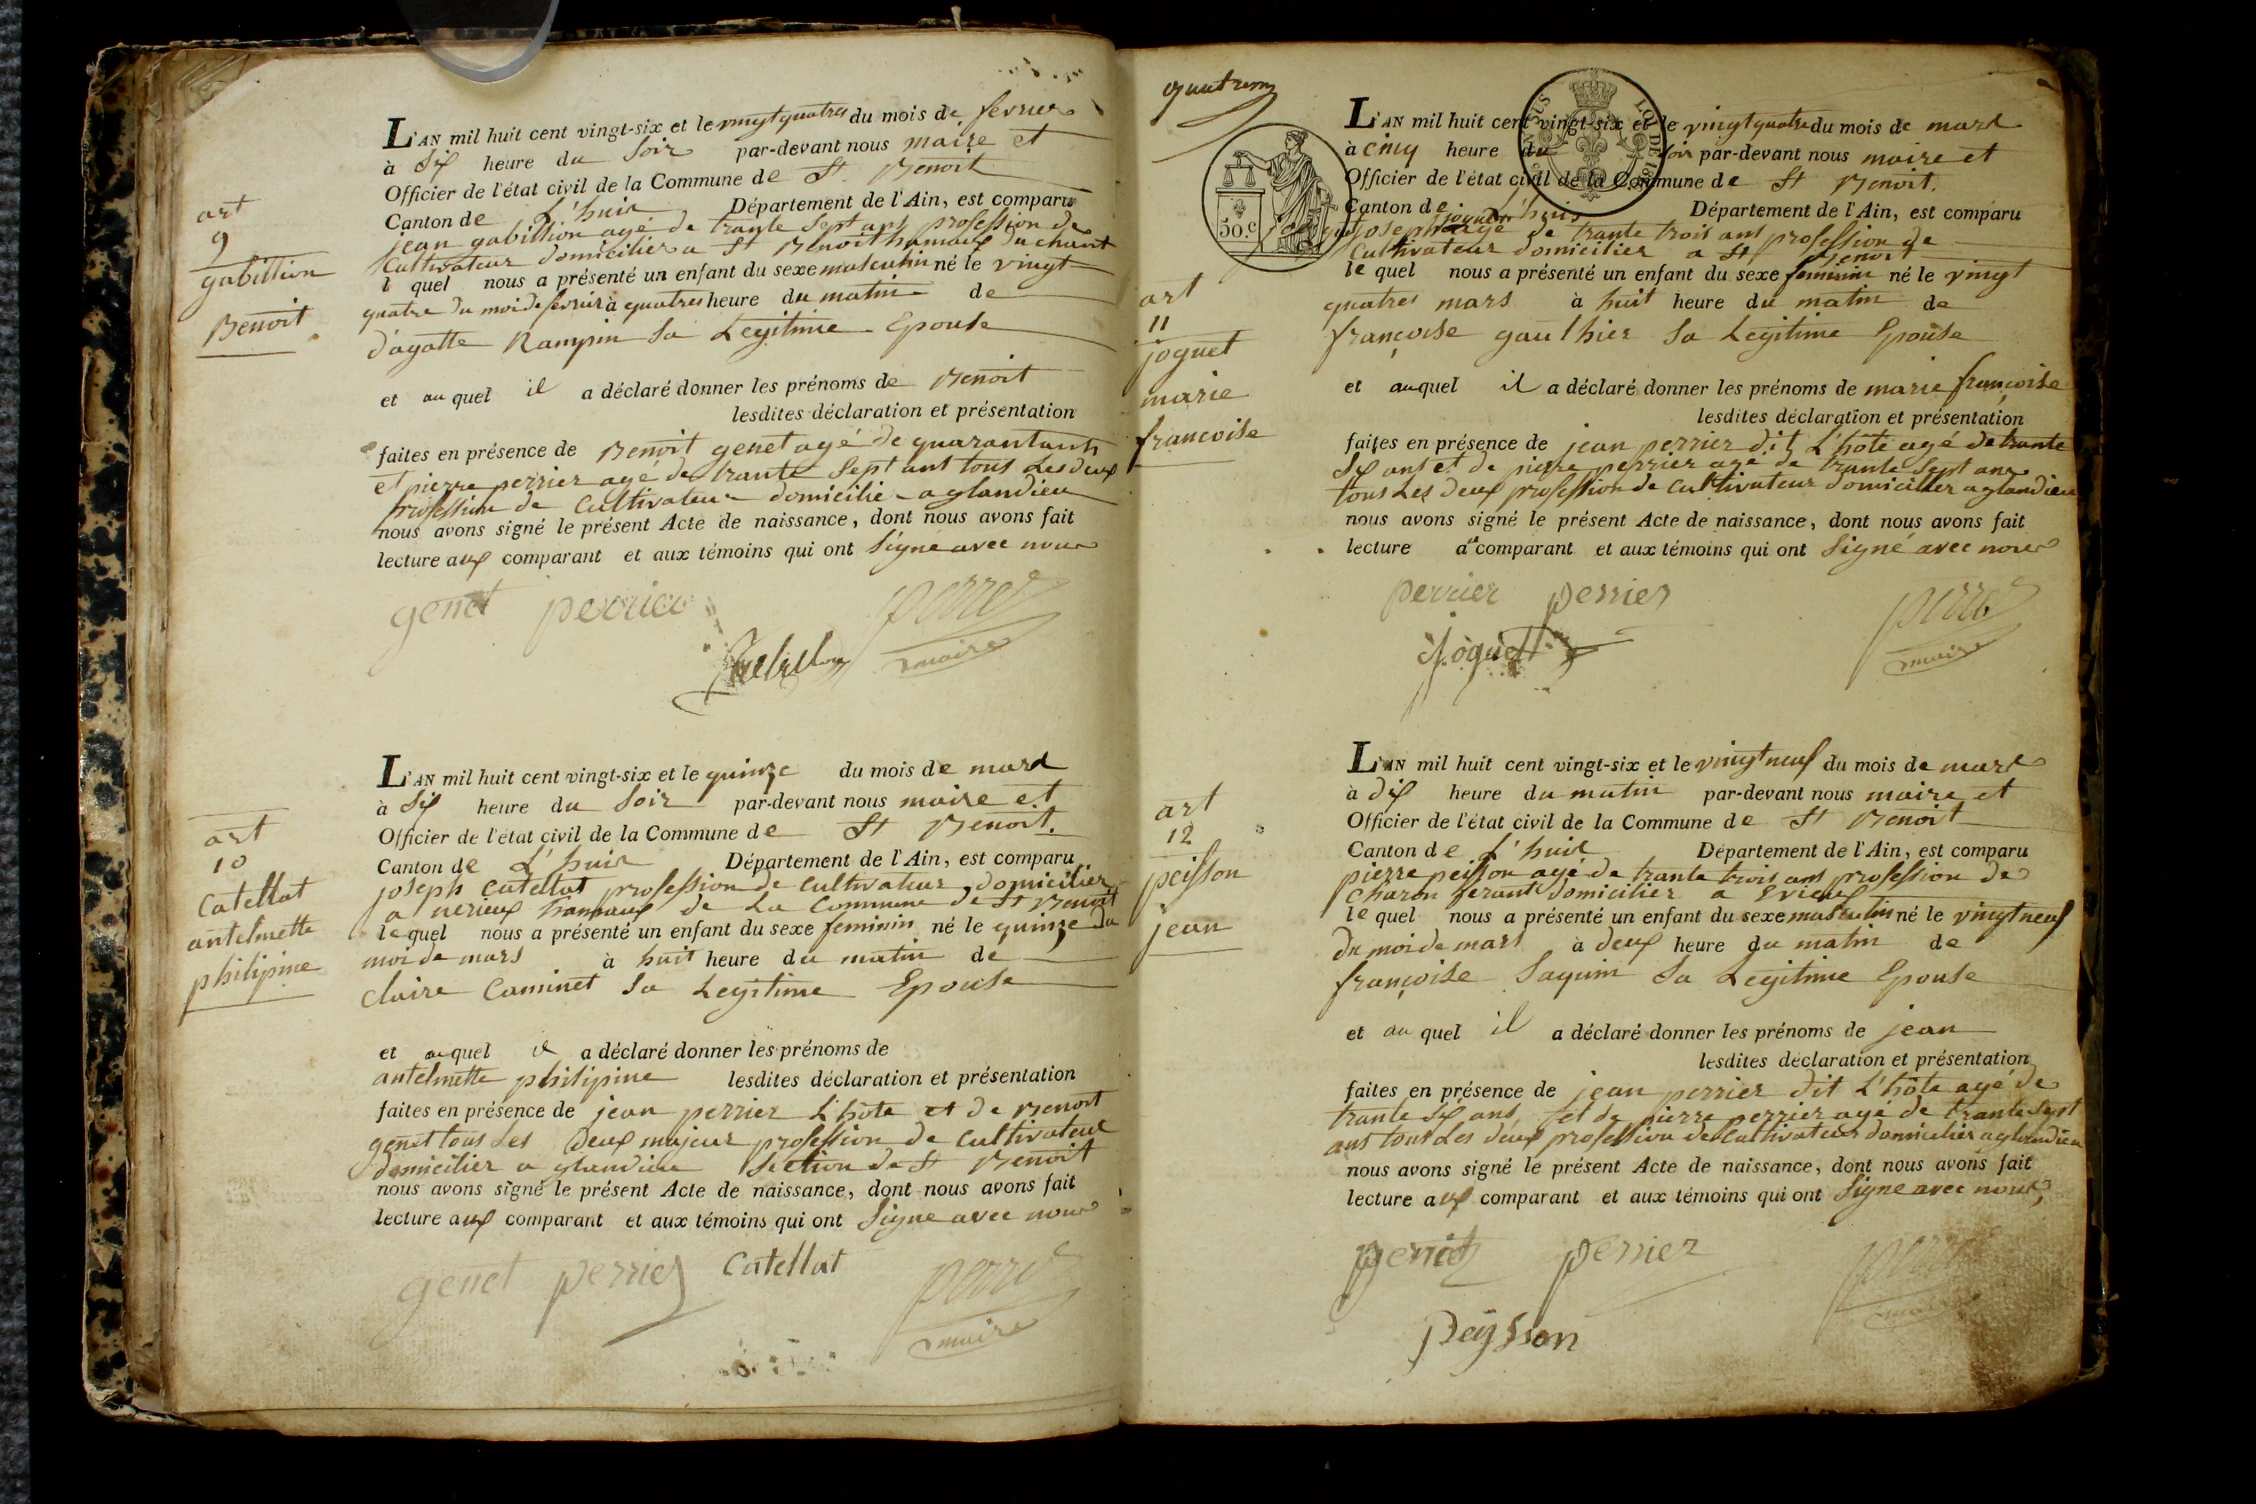 art
9
gabillion
Benoit
L'AN mil huit cent vingt-six et le vingt quatres du mois de fevrier
à Six heure du Soir par-devant nous maire et
Officier de l'état civil de la Commune de St Benoit
Canton de L'huis Département de l'Ain, est comparu
jean gabillion agé de trante Sept ans profession de
Cultivateur domicilier a St Benoit hamaux du
l quel nous a présenté un enfant du sexe masculin né le vingt
quatre du moi de fevrier à quatres heure du matin de
d'agatte Rampin Sa Legitime Epouse
et au quel il a déclaré donner les prénoms de Benoit
lesdites déclaration et présentation
faites en présence de Benoit genet agé de quarantants
et pierre perrier agé de trante Sept ant tous Les deux
profession de Cultivateur domicilié a glandieu
nous avons signé le présent Acte de naissance, dont nous avons fait
lecture aux comparant et aux témoins qui ont Signe avec nous
genet perrier perret
maire
art
10
Catellat
antelmette
philipine
L'AN mil huit cent vingt-six et le quinze du mois de mars
à Six heure du Soir par-devant nous maire et
Officier de l'état civil de la Commune de St Benoit.
Canton de L'huis Département de l'Ain, est comparu
joseph Catellat profession de cultivateur, domicilier
a nerieux hamaux de La Commune de St Benoit
le quel nous a présenté un enfant du sexe feminin né le quinze du
moi de mars à huit heure du matin de
Claire Caminet Sa Legitime Epouse
et au quel il a déclaré donner les prénoms de
antelmette philipine lesdites déclaration et présentation
faites en présence de jean perrier L'hôte et de Benoit
genet tous Les deux majeur profession de Cultivateur
domicilier a glandieu Section de St Benoit
nous avons signé le présent Acte de naissance, dont nous avons fait
lecture aux comparant et aux témoins qui ont Signe avec nous
genet perrier Catellat perret
maire
50.c
art
11
joguet
marie
francoise
L'AN mil huit cent vingt-six et le vingt quatre du mois de mars
à cinq heure du Soir par-devant nous maire et
Officier de l'état civil de la Commune de St Benoit.
Canton de L'huis Département de l'Ain, est comparu
joguet joseph agé de trante trois ans profession de
Cultivateur domicilier a St Benoit
le quel nous a présenté un enfant du sexe feminin né le vingt
quatres mars à huit heure du matin de
françoise gaulhier Sa Legitime Epouse
et au quel il a déclaré donner les prénoms de marie françoise
lesdites déclaration et présentation
faites en présence de jean perrier dit L'hôte agé de trante
Six ans et de pierre perrier agé de trante Sept ans
tous Les deux profession de Cultivateur domicilier a glandieu
nous avons signé le présent Acte de naissance, dont nous avons fait
lecture au comparant et aux témoins qui ont Signé avec nous
perrier perrier perret
joguet maire
art
12
peisson
jean
L'AN mil huit cent vingt-six et le vingt neuf du mois de mars
à dix heure du matin par-devant nous maire et
Officier de l'état civil de la Commune de St Benoit
Canton de L'huis Département de l'Ain, est comparu
pierre peisson agé de trante trois ans profession de
charon ferant domicilier a Evieux
le quel nous a présenté un enfant du sexe masculin né le vingt neuf
du moi de mars à deux heure du matin de
françoise Saquin Sa Legitime Epouse
et au quel il a déclaré donner les prénoms de jean
lesdites déclaration et présentation
faites en présence de jean perrier dit L'hôte agé de
trante Six ans et de pierre perrier agé de trante Sept
ans tous Les deux profession de Cultivateur domicilier a glandieu
nous avons signé le présent Acte de naissance, dont nous avons fait
lecture aux comparant et aux témoins qui ont Signe avec nous
perrier perrier perret
maire
peÿsson